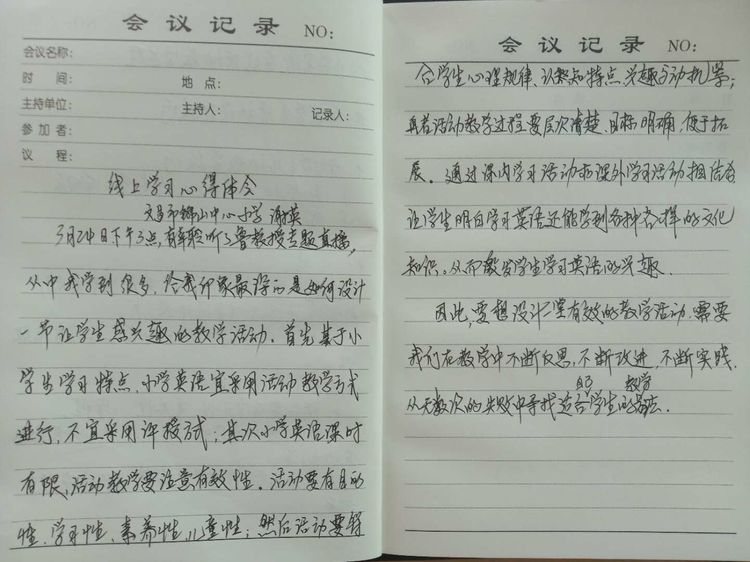 会议记录 NO:
会议名称:
时 间: 地 点:
主持单位: 主持人: 记录人:
参加者:
议 程:
线上学习心得体会
文昌市锦山中心小学 谢英
3月24日下午3点,有幸聆听了鲁教授专题直播,
从中我学到很多,给我印象最深的是如何设计
一节让学生感兴趣的教学活动。首先基于小
学生学习特点,小学英语宜采用活动教学方式
进行,不宜采用讲授方式;其次小学英语课时
有限,活动教学要注意有效性。活动要有目的
性、学习性、素养性、儿童性;然后活动要符
会议记录 NO:
合学生心理规律、认知特点、兴趣与动机等;
再者活动教学过程要层次清楚、目标明确、便于拓
展。通过课内学习活动和课外学习活动相结合
让学生明白学习英语还能学到各种各样的文化
知识。从而激发学生学习英语的兴趣。
因此,要想设计一堂有效的教学活动,需要
我们在教学中不断反思,不断改进,不断实践,
从无数次的失败中寻找适合自己学生的教学方法。